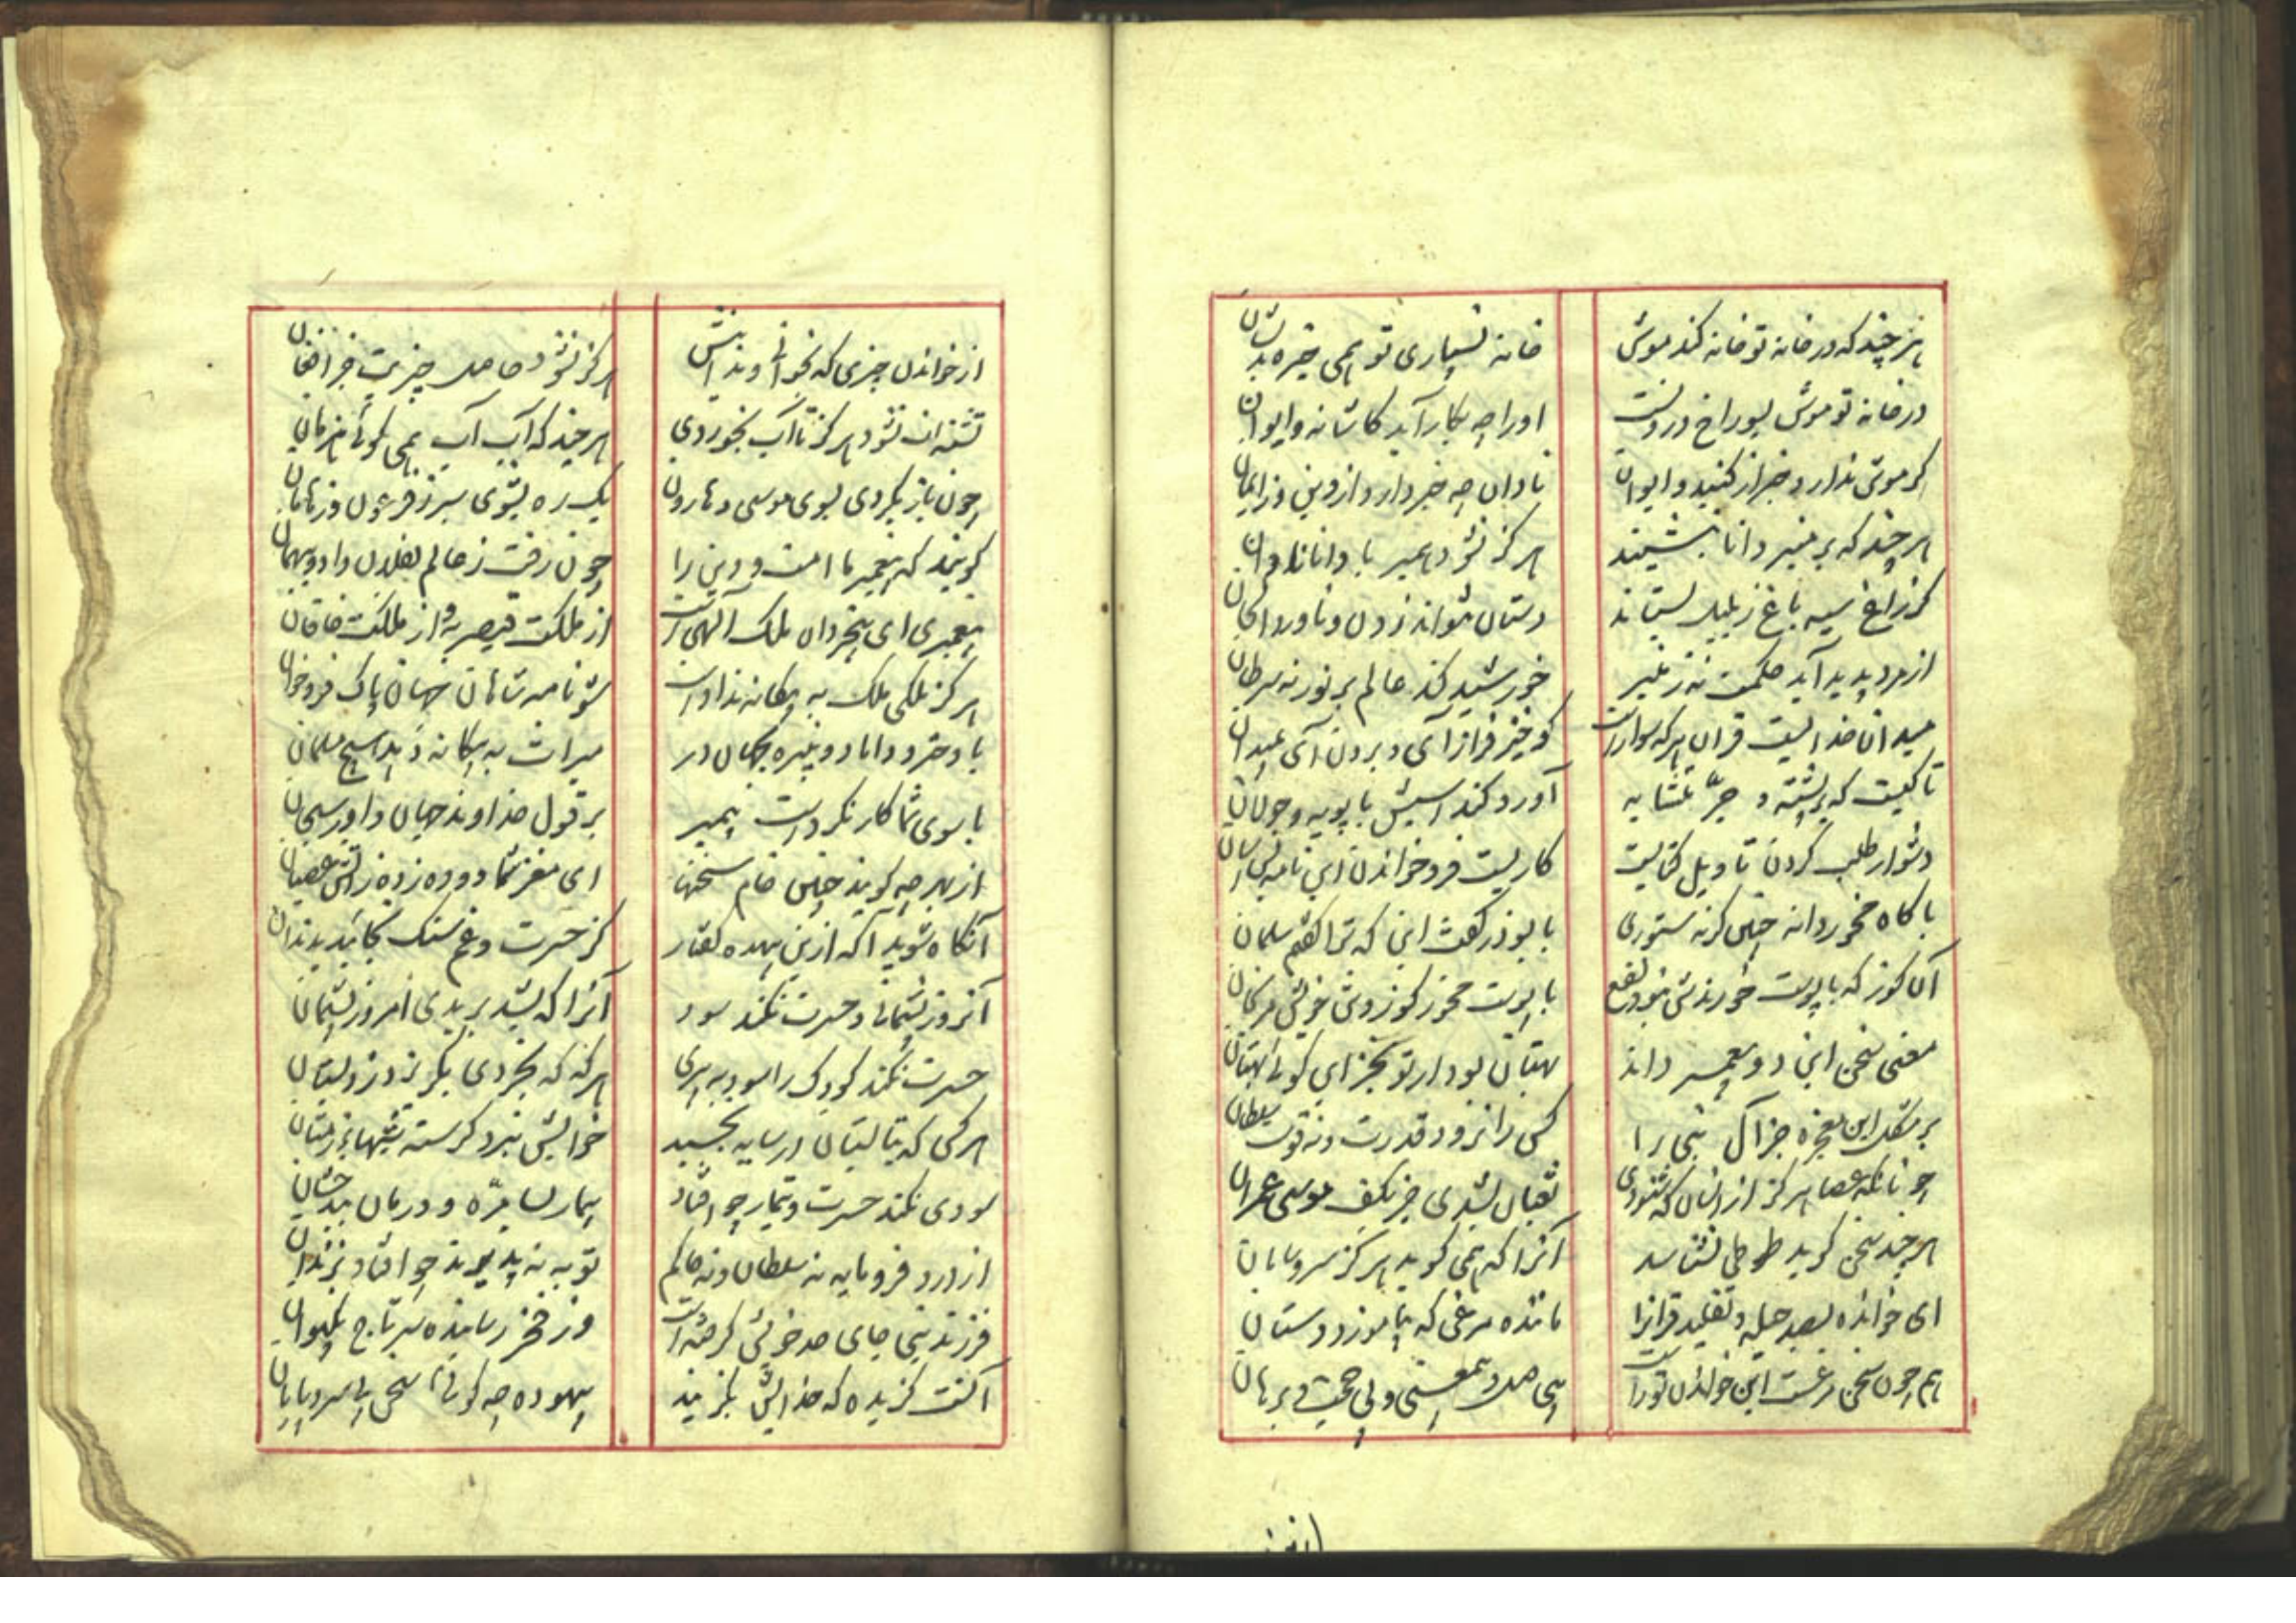 هر چند که در خانه تو خانه کند موش
خانه نسپاری تو همی خیره بدیشان
در خانه تو موش بسوراخ درونست
او را چه بکار آید کاشانه و ایوان
کر موش ندارد خبر از کنبد و ایوان
نادان چه خبر دارد از دین و ز ایمان
هر چند که بر منبر دانا بنشیند
هرکز نشود همبر با دانا نادان
کر زاغ سیه باغ ز بلبل بستاند
دستان نتواند زدن و ناورد الحان
از مرد پدید آید حکمت نه ز منبر
خورشید کند عالم پر نور نه سرطان
میدان خدایست قران هر که سوارست
کو خیز فراز آی و برون آی بمیدان
تا کیست که بر پشته و جر متشابه
آورد کند اسپش با پویه و جولان
دشوار طلب کردن تاویل کتابست
کاریست فرو خواندن این نامه بس آسان
با کاه مخور دانه چنین کر نه ستوری
با بوذر کفت این که ترا کفتم سلمان
آن کوز که با پوست خورندش نبود نفع
با پوست مخور کوز و مشو خویش مرنجان
معنی سخن این دو پیمبر داند
بهتان بود ار تو بجز این کوئی بهتان
بر مشکل این معجزه جز آل نبی را
کس را نبود قدرت و نه قوت سلطان
چونانکه عصا هرکز از انسان که شنودی
ثعبان نشدی جز بکف موسی عمران
هر چند سخن کوید طوطی نشناسد
آنرا که همی کوید هرکز سر و سامان
ای خوانده بصد حیله و تقلید قرانرا
ماننده مرغی که بیاموزد دستان
هم چون سخن مرغست این خواندن تو راست
بی حاصل و بی معنی و بی حجت و برهان
از خواندن چیزی که بخوانی و ندانیش
هرکز نشود حاصل چیزیت جز افغان
تشنه‌ات نشود هرکز تا آب نخوردی
هر چند که آب آب همی کوئی هزمان
چون باز نکردی بسوی موسی و هارون
یک ره بشوی سیر ز فرعون و ز هامان
کویند که پیغمبر ما امت و دین را
چون رفت ز عالم بفلان داد و بهمان
پیغمبری ای بیخردان ملک الهی است
از ملکت قیصر به و از ملکت خاقان
هرکز ملکی ملک به بیکانه ندادست
شو نامه شاهان جهان پاک فروخوان
با دختر و داماد و نبیره بجهان در
میراث به بیکانه دهد هیچ مسلمان
با سوی شما کار نکردست پیمبر
بر قول خداوند جهان داور سبحان
از بهر چه کویند چنین خام سخنها
ای مغز شما دوده زده ز آتش عصیان
آنکاه شوید آکه ازین بیهده کفتار
کز حسرت و غم سنک بخائید بدندان
آنروز پشیمانی و حسرت نکند سود
آنرا که نشد بر بدی امروز پشیمان
حسرت نکند کودک را سود به پیری
هر که که بخردی بکریزد ز دبستان
هر کس که بتابستان در سایه بخسبد
خوابش نبرد کرسنه شبهای زمستان
سودی نکند حسرت و تیمار چو افتاد
بیمار بسامره و درمان ببدخشان
از درد فرومایه نه سلطان و نه حاکم
توبه نپذیرند چو افتاد بزندان
فرزند نبی جای جد خویش کرفته است
وز فخر رسانیده سر تاج بکیوان
آنست کزیده که خدایش بکزیند
بیهوده چه کوئی سخن بی سر و پایان